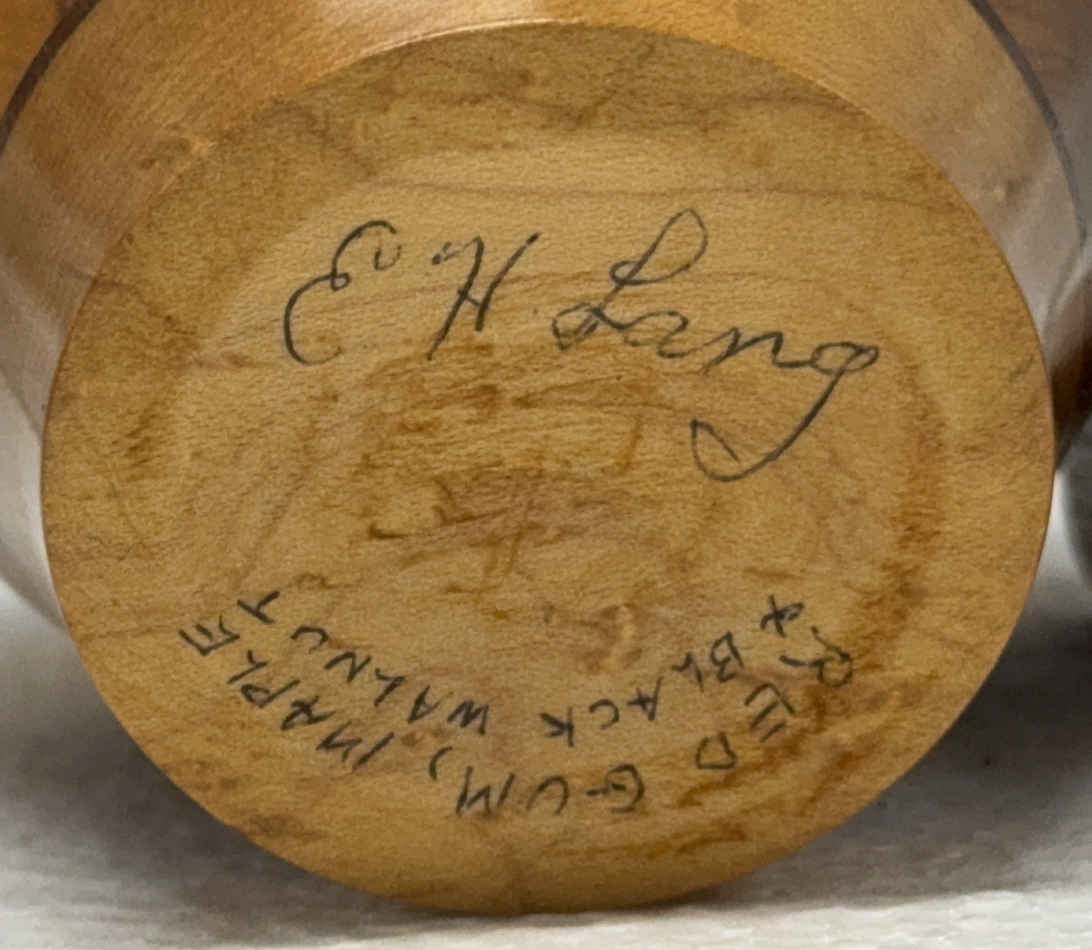 E. H. Lang
RED GUM, MAPLE
& BLACK WALNUT